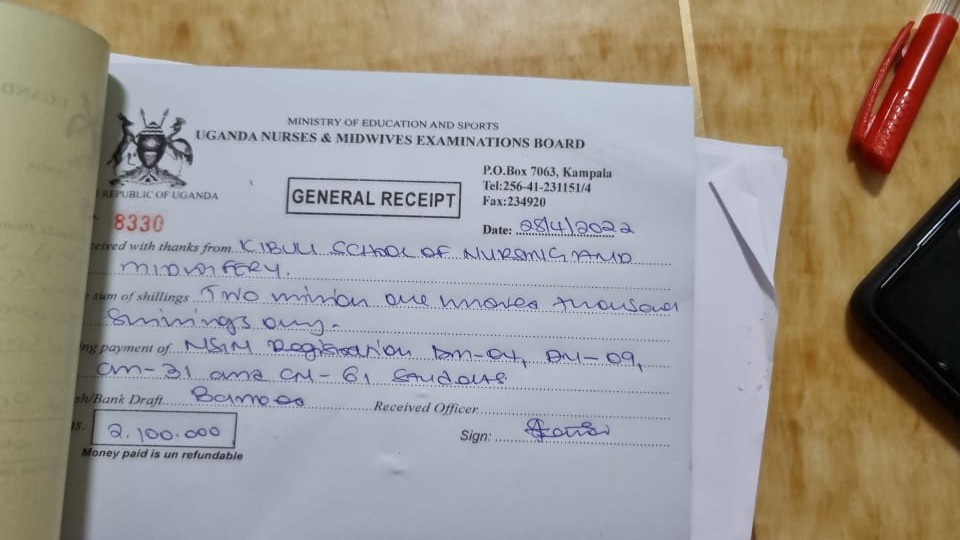 MINISTRY OF EDUCATION AND SPORTS
UGANDA NURSES & MIDWIVES EXAMINATIONS BOARD
REPUBLIC OF UGANDA
P.O.Box 7063, Kampala
Tel:256-41-231151/4
Fax:234920
GENERAL RECEIPT
8330
Date: 28/4/2022
ceived with thanks from KIBULI SCHOOL OF NURSING AND
MIDWIFERY.
sum of shillings Two million one hundred thousand
Shillings only.
ng payment of NSIM Registration DM-04, DN-09,
CM-31 and CN-61 Students
sh/Bank Draft Banked Received Officer
s. 2.100.000
Sign:
Money paid is un refundable